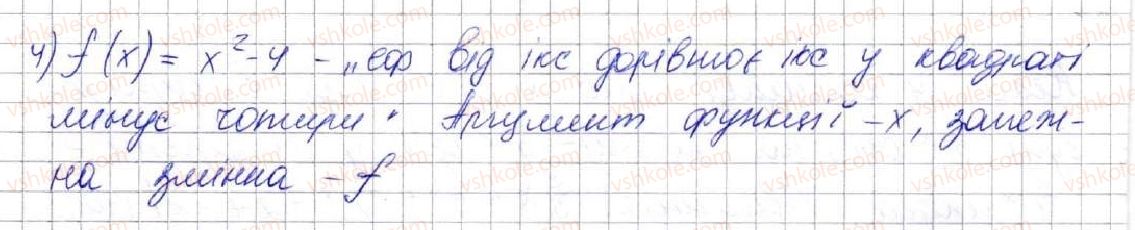 4) f(x) = x² - 4 - „еф від ікс дорівнює ікс у квадраті
мінус чотири". Аргумент функції - x, залеж-
на змінна - f